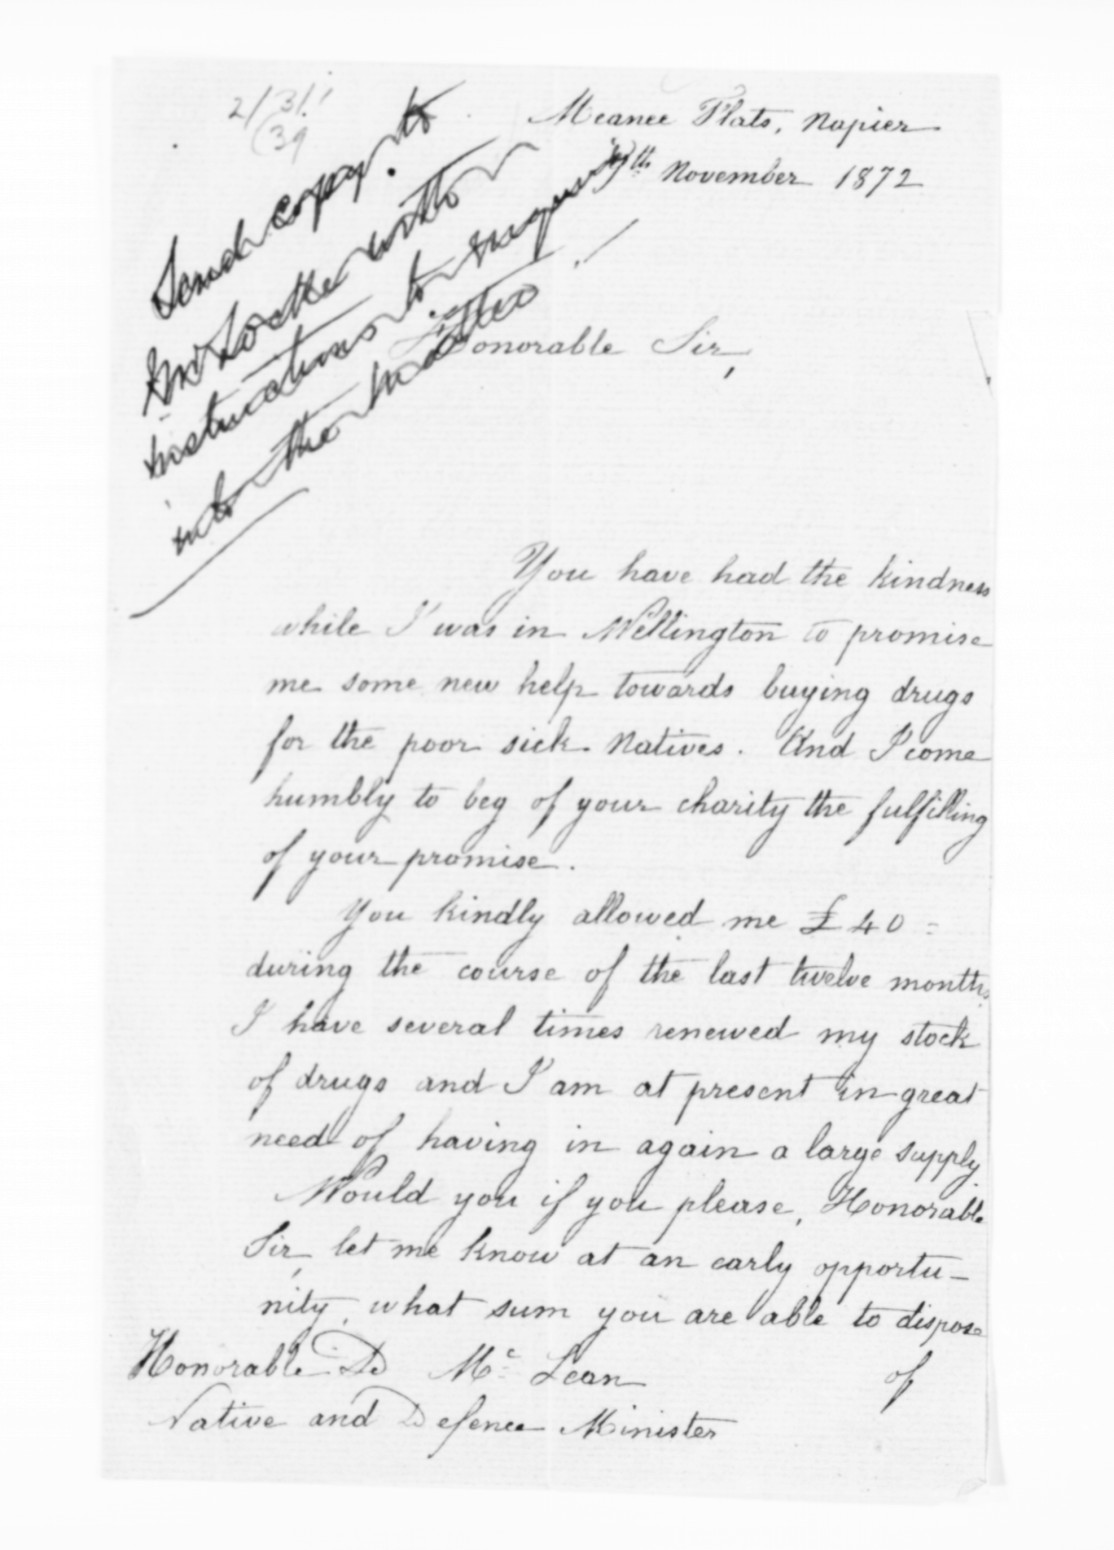 2/31!
(39
Meanee Flats, Napier
th November 1872
Send copy to
Mr Locke with
instructions to inquire
into the matter
Honorable Sir,
You have had the kindness
while I was in Wellington to promise
me some new help towards buying drugs
for the poor sick Natives. And I come
humbly to beg of your charity the fulfilling
of your promise.
You kindly allowed me £40 =
during the course of the last twelve months
I have several times renewed my stock
of drugs and I am at present in great
need of having in again a large supply.
Would you if you please, Honorable
Sir, let me know at an early opportu-
nity, what sum you are able to dispose
of
Honorable D Mc Lean
Native and Defence Minister